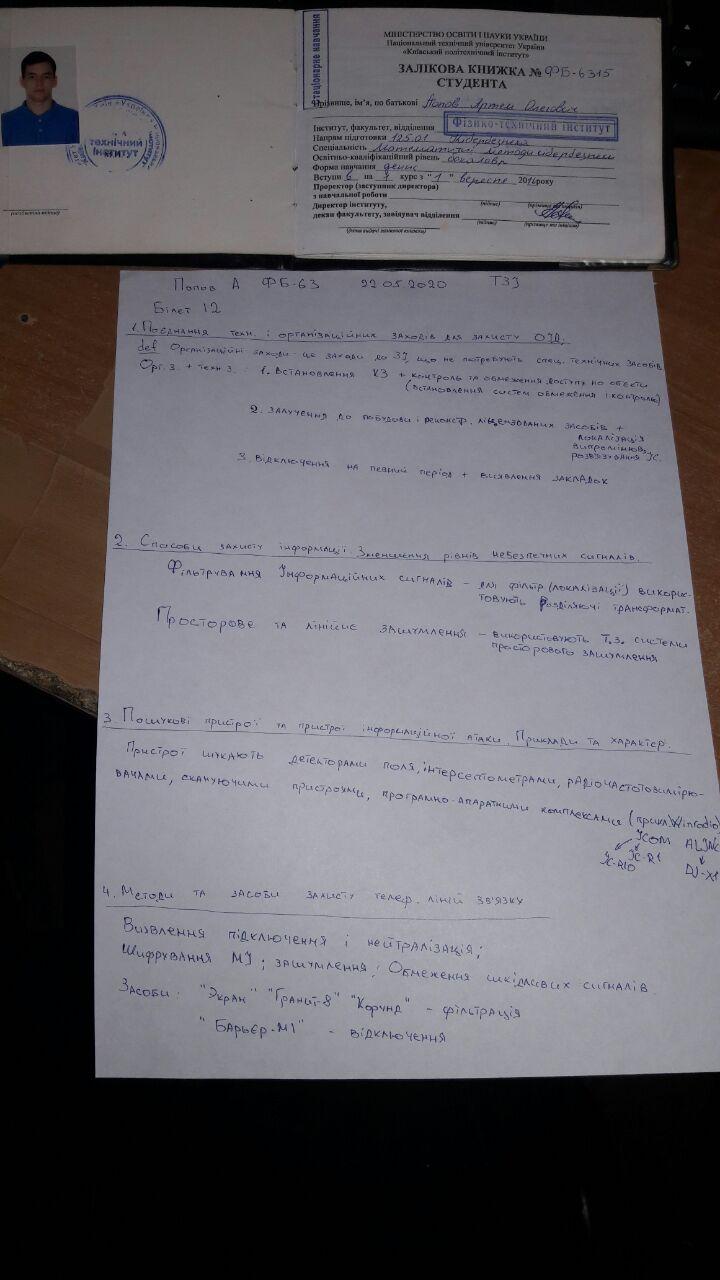 стаціонарне навчання
МІНІСТЕРСТВО ОСВІТИ І НАУКИ УКРАЇНИ
Національний технічний університет України
«Київський політехнічний інститут»
ЗАЛІКОВА КНИЖКА № ФБ-6315
СТУДЕНТА
Прізвище, ім'я, по батькові Попов Артем Олегович
Інститут, факультет, відділення Фізико-технічний інститут
Напрям підготовки 125.01 Кібербезпека
Спеціальність Математичні методи кібербезпеки
Освітньо-кваліфікаційний рівень бакалавр
Форма навчання денна
Вступив на 1 курс з "1" вересня 2016 року
Проректор (заступник директора)
з навчальної роботи
(підпис)
Директор інституту,
декан факультету, завідувач відділення
(підпис) (прізвище та ініціали)
(дата видачі залікової книжки)
технічний
інститут
Попов А ФБ-63 22.05.2020 ТЗІ
Білет 12
1. Поєднання техн. і організаційних заходів для захисту ОІД.
def Організаційні заходи - це заходи до ЗІ, що не потребують спец. технічних засобів
Орг. з. + техн з. : 1. Встановлення КЗ + контроль та обмеження доступу на обєкти
(встановлення систем обмеження і контролю)
2. Залучення до побудови і реконстр. ліцензованих засобів +
локалізація
випромінюв,
розвязування ІС.
3. Відключення на певний період + виявлення закладок
2. Способи захисту інформації. Зменшення рівнів небезпечних сигналів.
Фільтрування Інформаційних сигналів - для фільтр (локалізації) викорис-
товують розділяючі трансформат.
Просторове та лінійне зашумлення - використовують т.з. системи
просторового зашумлення
3. Пошукові пристрої та пристрої інформаційної атаки. Приклади та характер.
Пристрої шукають детекторами поля, інтерсептометрами, радіочастотовимірю-
вачами, скануючими пристроями, програмно-апаратними комплексами (прикл Winradio)
ICOM ALINCO
IC-R10 IC-R1 DJ-X1
4. Методи та засоби захисту телеф. ліній зв'язку
Виявлення підключення і нейтралізація;
Шифрування МІ; зашумлення; Обмеження шкідливих сигналів.
Засоби: "Экран" "Граніт-8" "Корунд" - фільтрація
"Барьєр-М1" - відключення